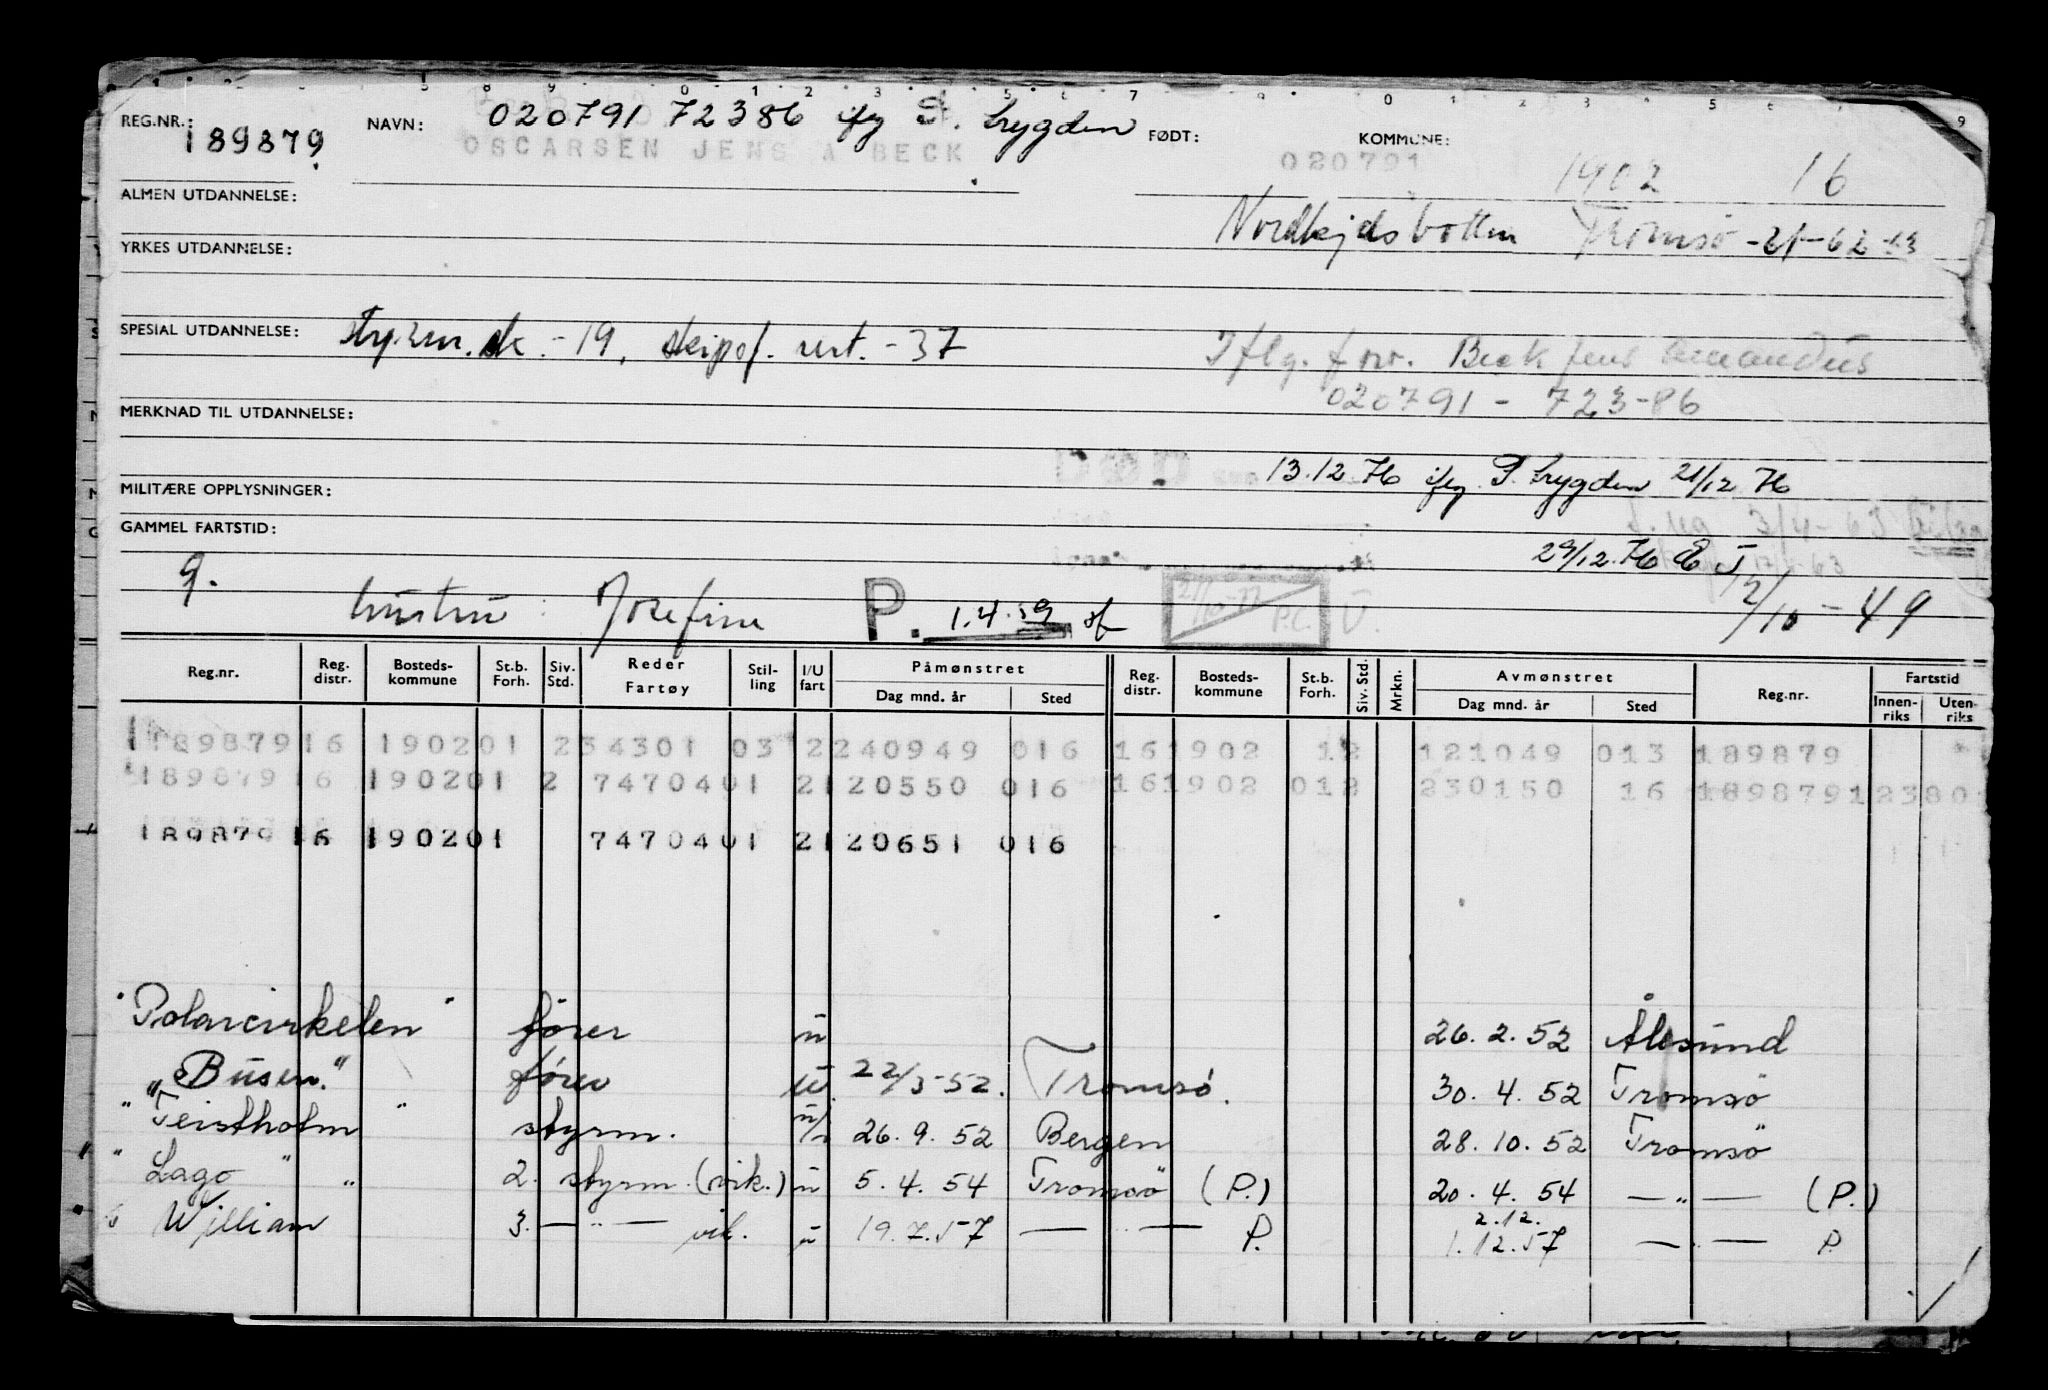 REG.NR.: 189879 NAVN: 020791 72386 ifg P. trygden FØDT: KOMMUNE:
OSCARSEN JENS A BECK 020791 1902 16
ALMEN UTDANNELSE:
Tromsø -21-62
YRKES UTDANNELSE:
SPESIAL UTDANNELSE: styrm.sk. -19, skipsf. sert. -37 Iflg. fnr. Beck Jens Amandus
020791 - 723-86
MERKNAD TIL UTDANNELSE:
DØD. 13.12.76 ifg P. trygden 21/12 76
MILITÆRE OPPLYSNINGER:
3/4-63
GAMMEL FARTSTID: 29/12.76
g. hustru: Josefine P. 1.4.59 P.C. U. 12/10-49
Reg.nr. Reg. distr. Bosteds-kommune St.b. Forh. Siv. Std. Reder Fartøy Stil-ling I/U fart Påmønstret Dag mnd. år Sted Reg. distr. Bosteds-kommune St.b. Forh. Siv. Std. Mrkn. Avmønstret Dag mnd. år Sted Reg.nr. Fartstid Innen-riks Uten-riks
189879 16 1902 01 2 34301 03 2 240949 016 16 1902 12 121049 013 189879
189879 16 1902 01 2 74704 01 2 120550 016 16 1902 012 230150 16 189879 12380
189879 16 1902 01 74704 01 2 120651 016
"Polarcirkelen" fører u 26.2.52 Ålesund
"Busen" fører u 22/3-52. Tromsø. 30.4.52 Tromsø
"Teistholm" styrm. u/i 26.9.52 Bergen 28.10.52 Tromsö
"Lago" 2. styrm. (vik.) u 5.4.54 Tromsö (P.) 20.4.54 —"— (P.)
2.12.
William 3. —"— vik. u 19.7.57 —"— P. 1.12.57 —"— P